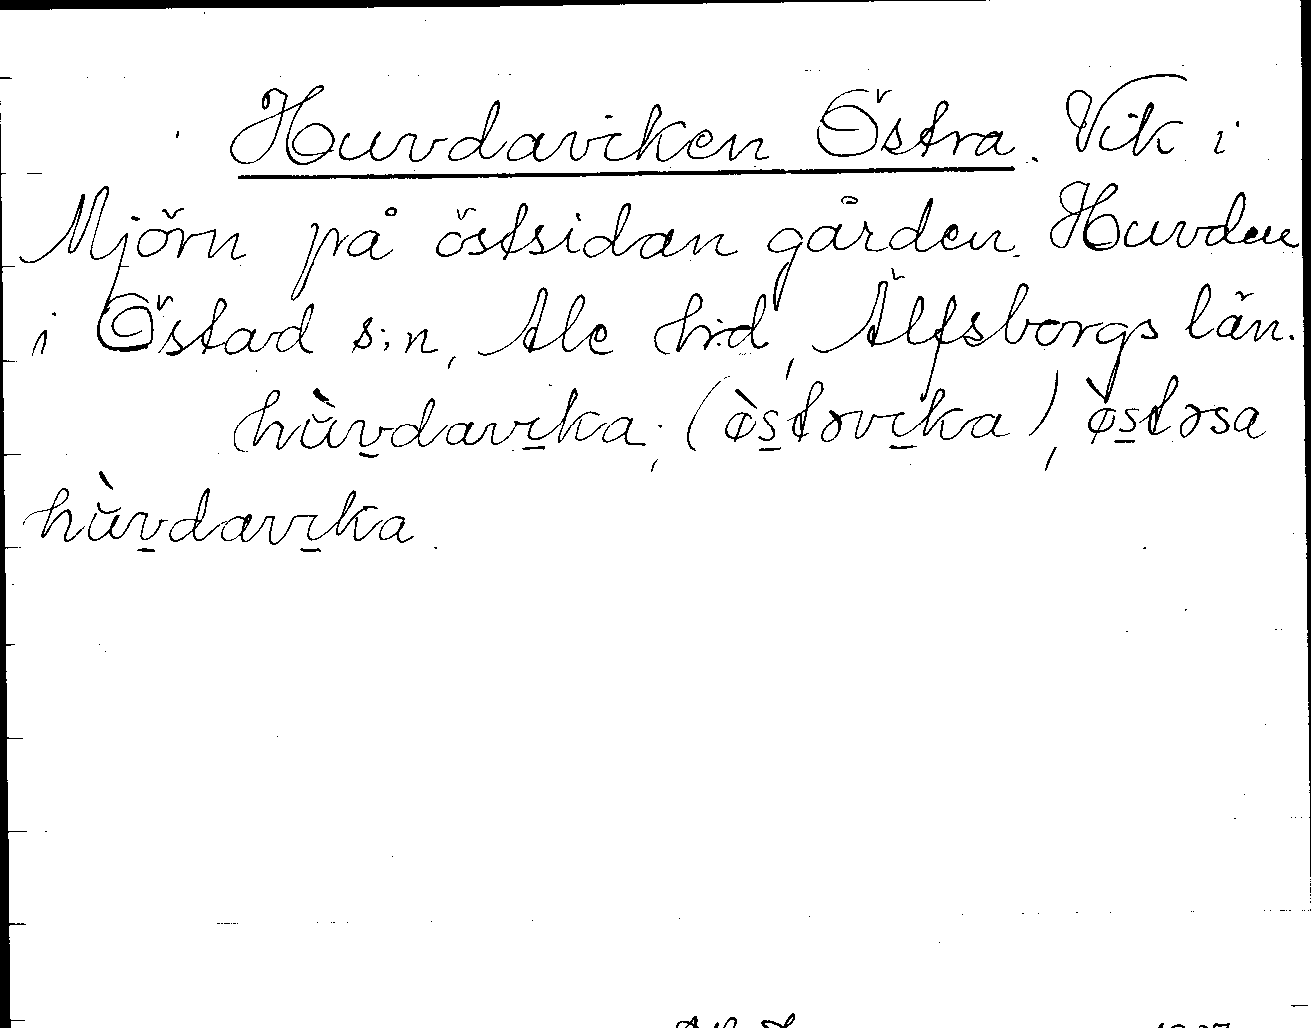 Huvdaviken Östra. Vik i
Mjörn på östsidan gården Huvden
i Östad s:n, Ale h:d, Älfsborgs län.
hùv̱davi̱ka; (ø̀s̱tərvi̱ka), ø̀s̱tərsa
hùv̱davi̱ka.